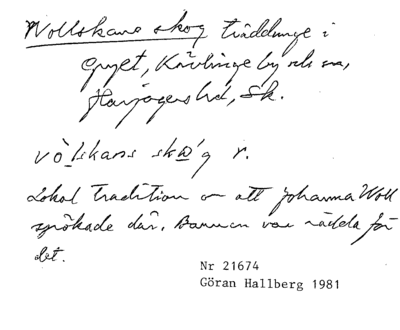 Wollskans skog träddunge i
gruset, Kävlinge by och sn,
Harjagers hd, Sk.
vò`lskans skω´g r.
Lokal tradition om att Johanna Woll
spökade där. Barnen voro rädda för
det.
Nr 21674
Göran Hallberg 1981